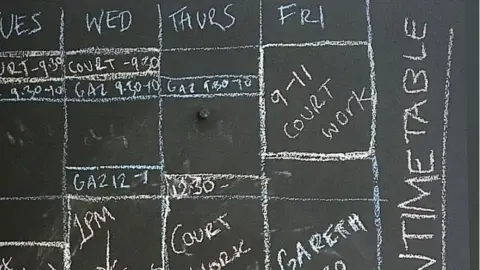 UES WED THURS FRI
URT -9.30 COURT -9.30
9.30-10 GA2 9.30-10 GA2 9.30-10
9-11
COURT
WORK
GA2 12-1
12.30-
1PM
COURT
WORK
GARETH
TIMETABLE